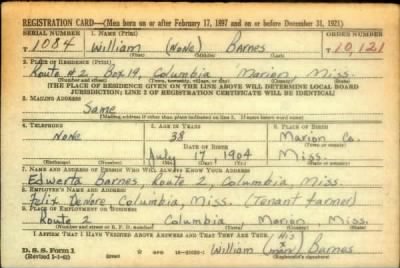 REGISTRATION CARD—(Men born on or after February 17, 1897 and on or before December 31, 1921)
SERIAL NUMBER 1. NAME (Print) ORDER NUMBER
T 1084 William (None) Barnes T 10,121
(First) (Middle) (Last)
2. PLACE OF RESIDENCE (Print)
Route #2 Box 19, Columbia Marion, Miss.
(Number and street) (Town, township, village, or city) (County) (State)
[THE PLACE OF RESIDENCE GIVEN ON THE LINE ABOVE WILL DETERMINE LOCAL BOARD
JURISDICTION; LINE 2 OF REGISTRATION CERTIFICATE WILL BE IDENTICAL]
3. MAILING ADDRESS
Same
[Mailing address if other than place indicated on line 2. If same insert word same]
4. TELEPHONE 5. AGE IN YEARS 6. PLACE OF BIRTH
None 38 Marion Co.
DATE OF BIRTH (Town or county)
July 17 1904 Miss.
(Exchange) (Number) (Mo.) (Day) (Yr.) (State or country)
7. NAME AND ADDRESS OF PERSON WHO WILL ALWAYS KNOW YOUR ADDRESS
Barnes, Route 2, Columbia, Miss
8. EMPLOYER'S NAME AND ADDRESS
Felix Columbia, Miss. (Tenant Farmer)
9. PLACE OF EMPLOYMENT OR BUSINESS
Route 2 Columbia Marion Miss
(Number and street or R. F. D. number) (Town) (County) (State)
I AFFIRM THAT I HAVE VERIFIED ABOVE ANSWERS AND THAT THEY ARE TRUE.
His
D. S. S. Form 1 William (X mark) Barnes
(Revised 4-1-42) GPO (Registrant's signature)